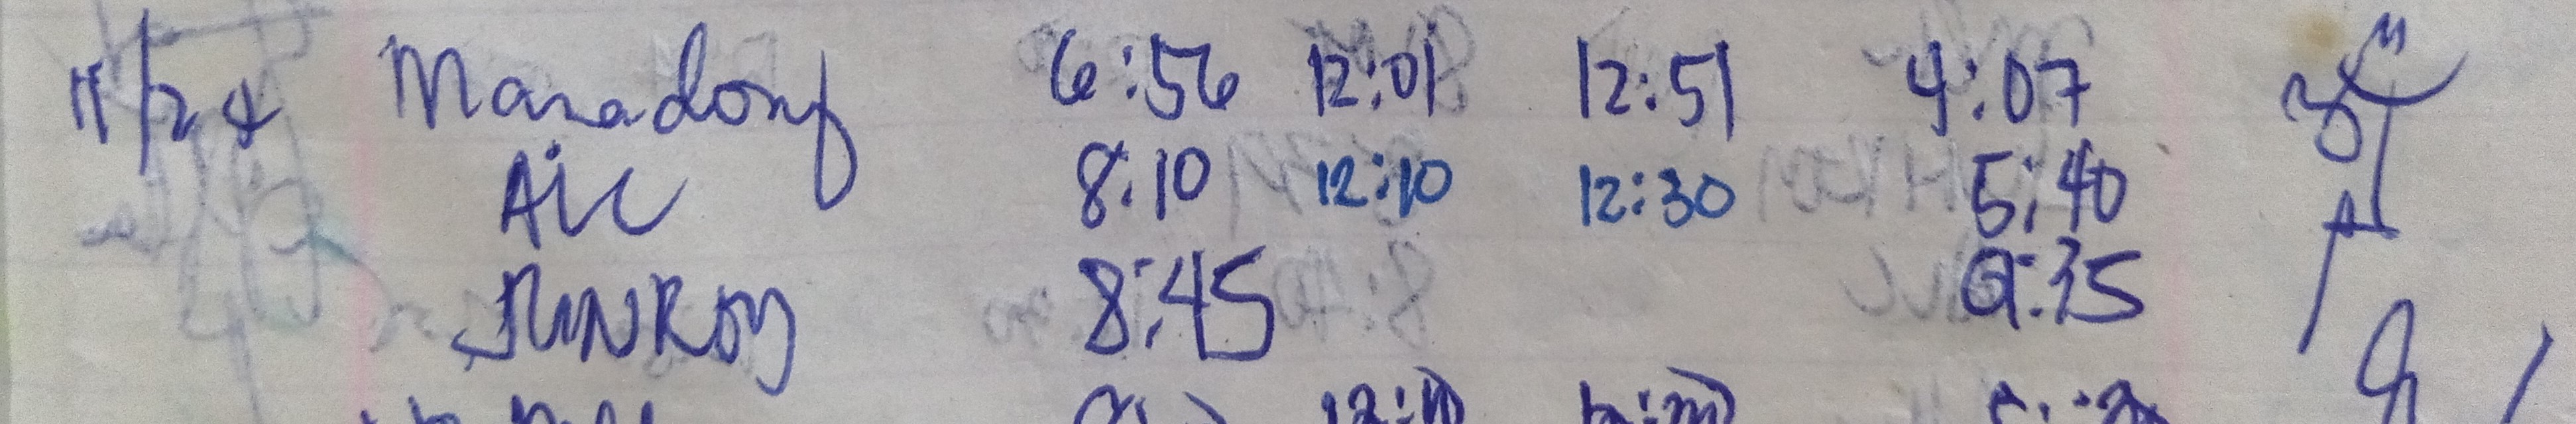 11/24 Manadong 6:56 12:01 12:51 4:07
AiC 8:10 12:10 12:30 5:40
JUNROY 8:45 9:35